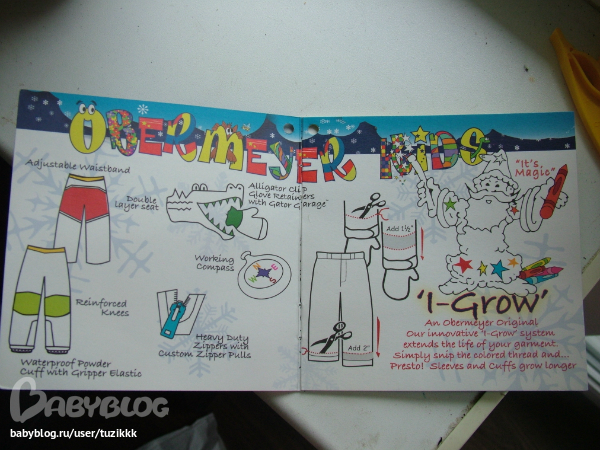 OBERMEYER KIDS
Adjustable Waistband
Double
layer seat
Alligator Clip
Glove Retainers
with Gator Garage
Working
Compass
Reinforced
Knees
Heavy Duty
Zippers with
Custom Zipper Pulls
Waterproof Powder
Cuff with Gripper Elastic
Add 1½"
Add 2"
"It's
Magic"
'I-Grow'
An Obermeyer Original
Our innovative 'I-Grow' system
extends the life of your garment.
Simply snip the colored thread and...
Presto! Sleeves and Cuffs grow longer
BABYBLOG
babyblog.ru/user/tuzikkk